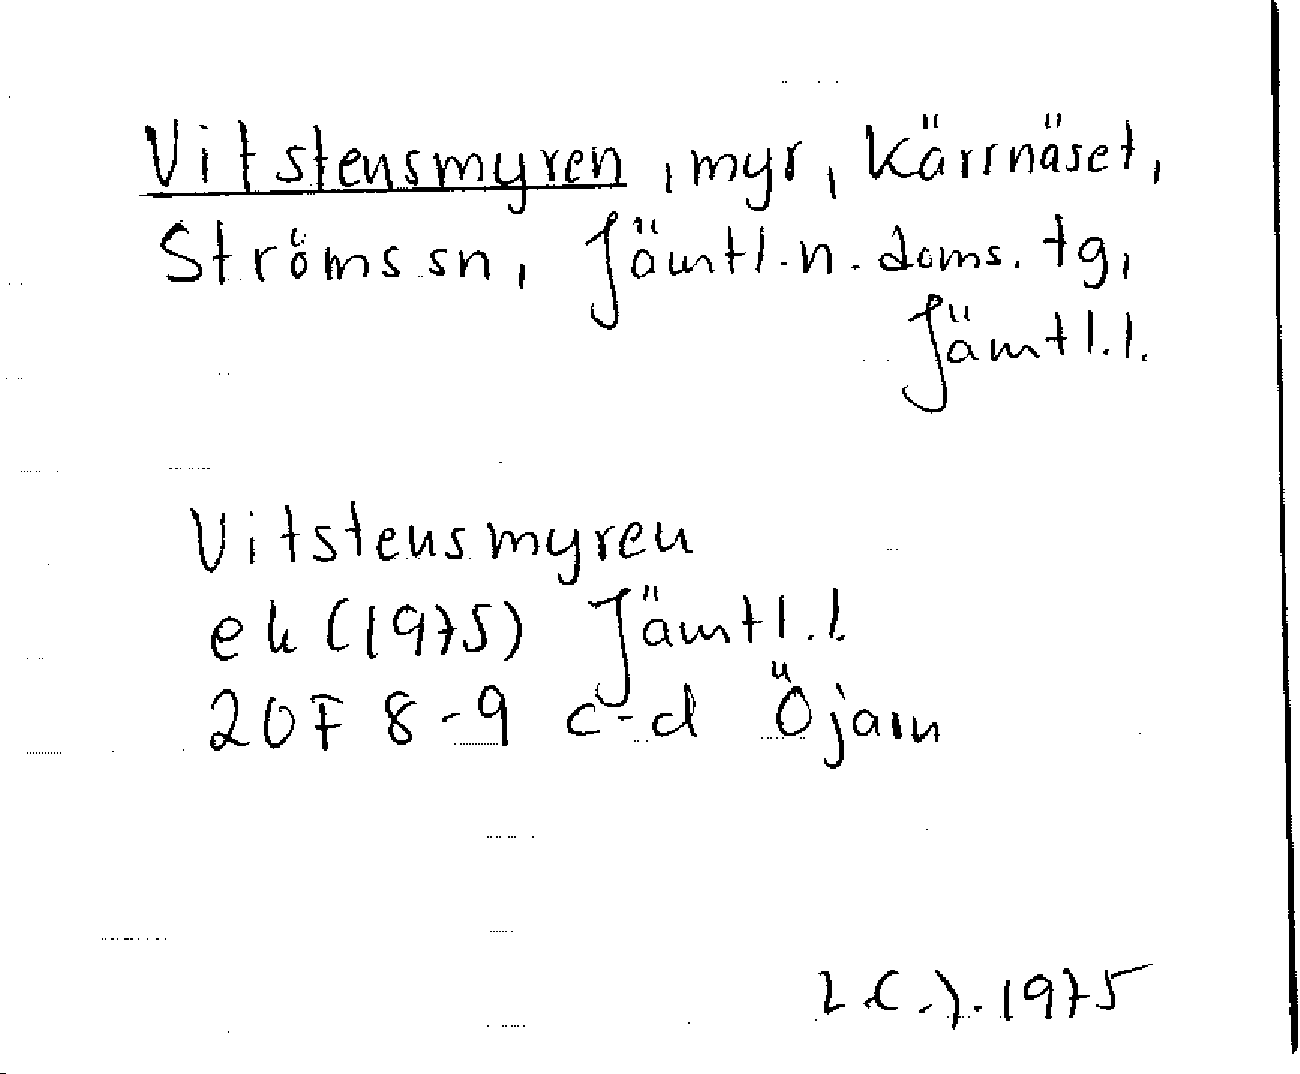 Vitstensmyren, myr, Kärrnäset,
Ströms sn, Jämtl. n. doms. tg,
Jämtl. l.
Vitstensmyren
ek (1975) Jämtl. l.
20F 8-9 c-d Öjarn
1975